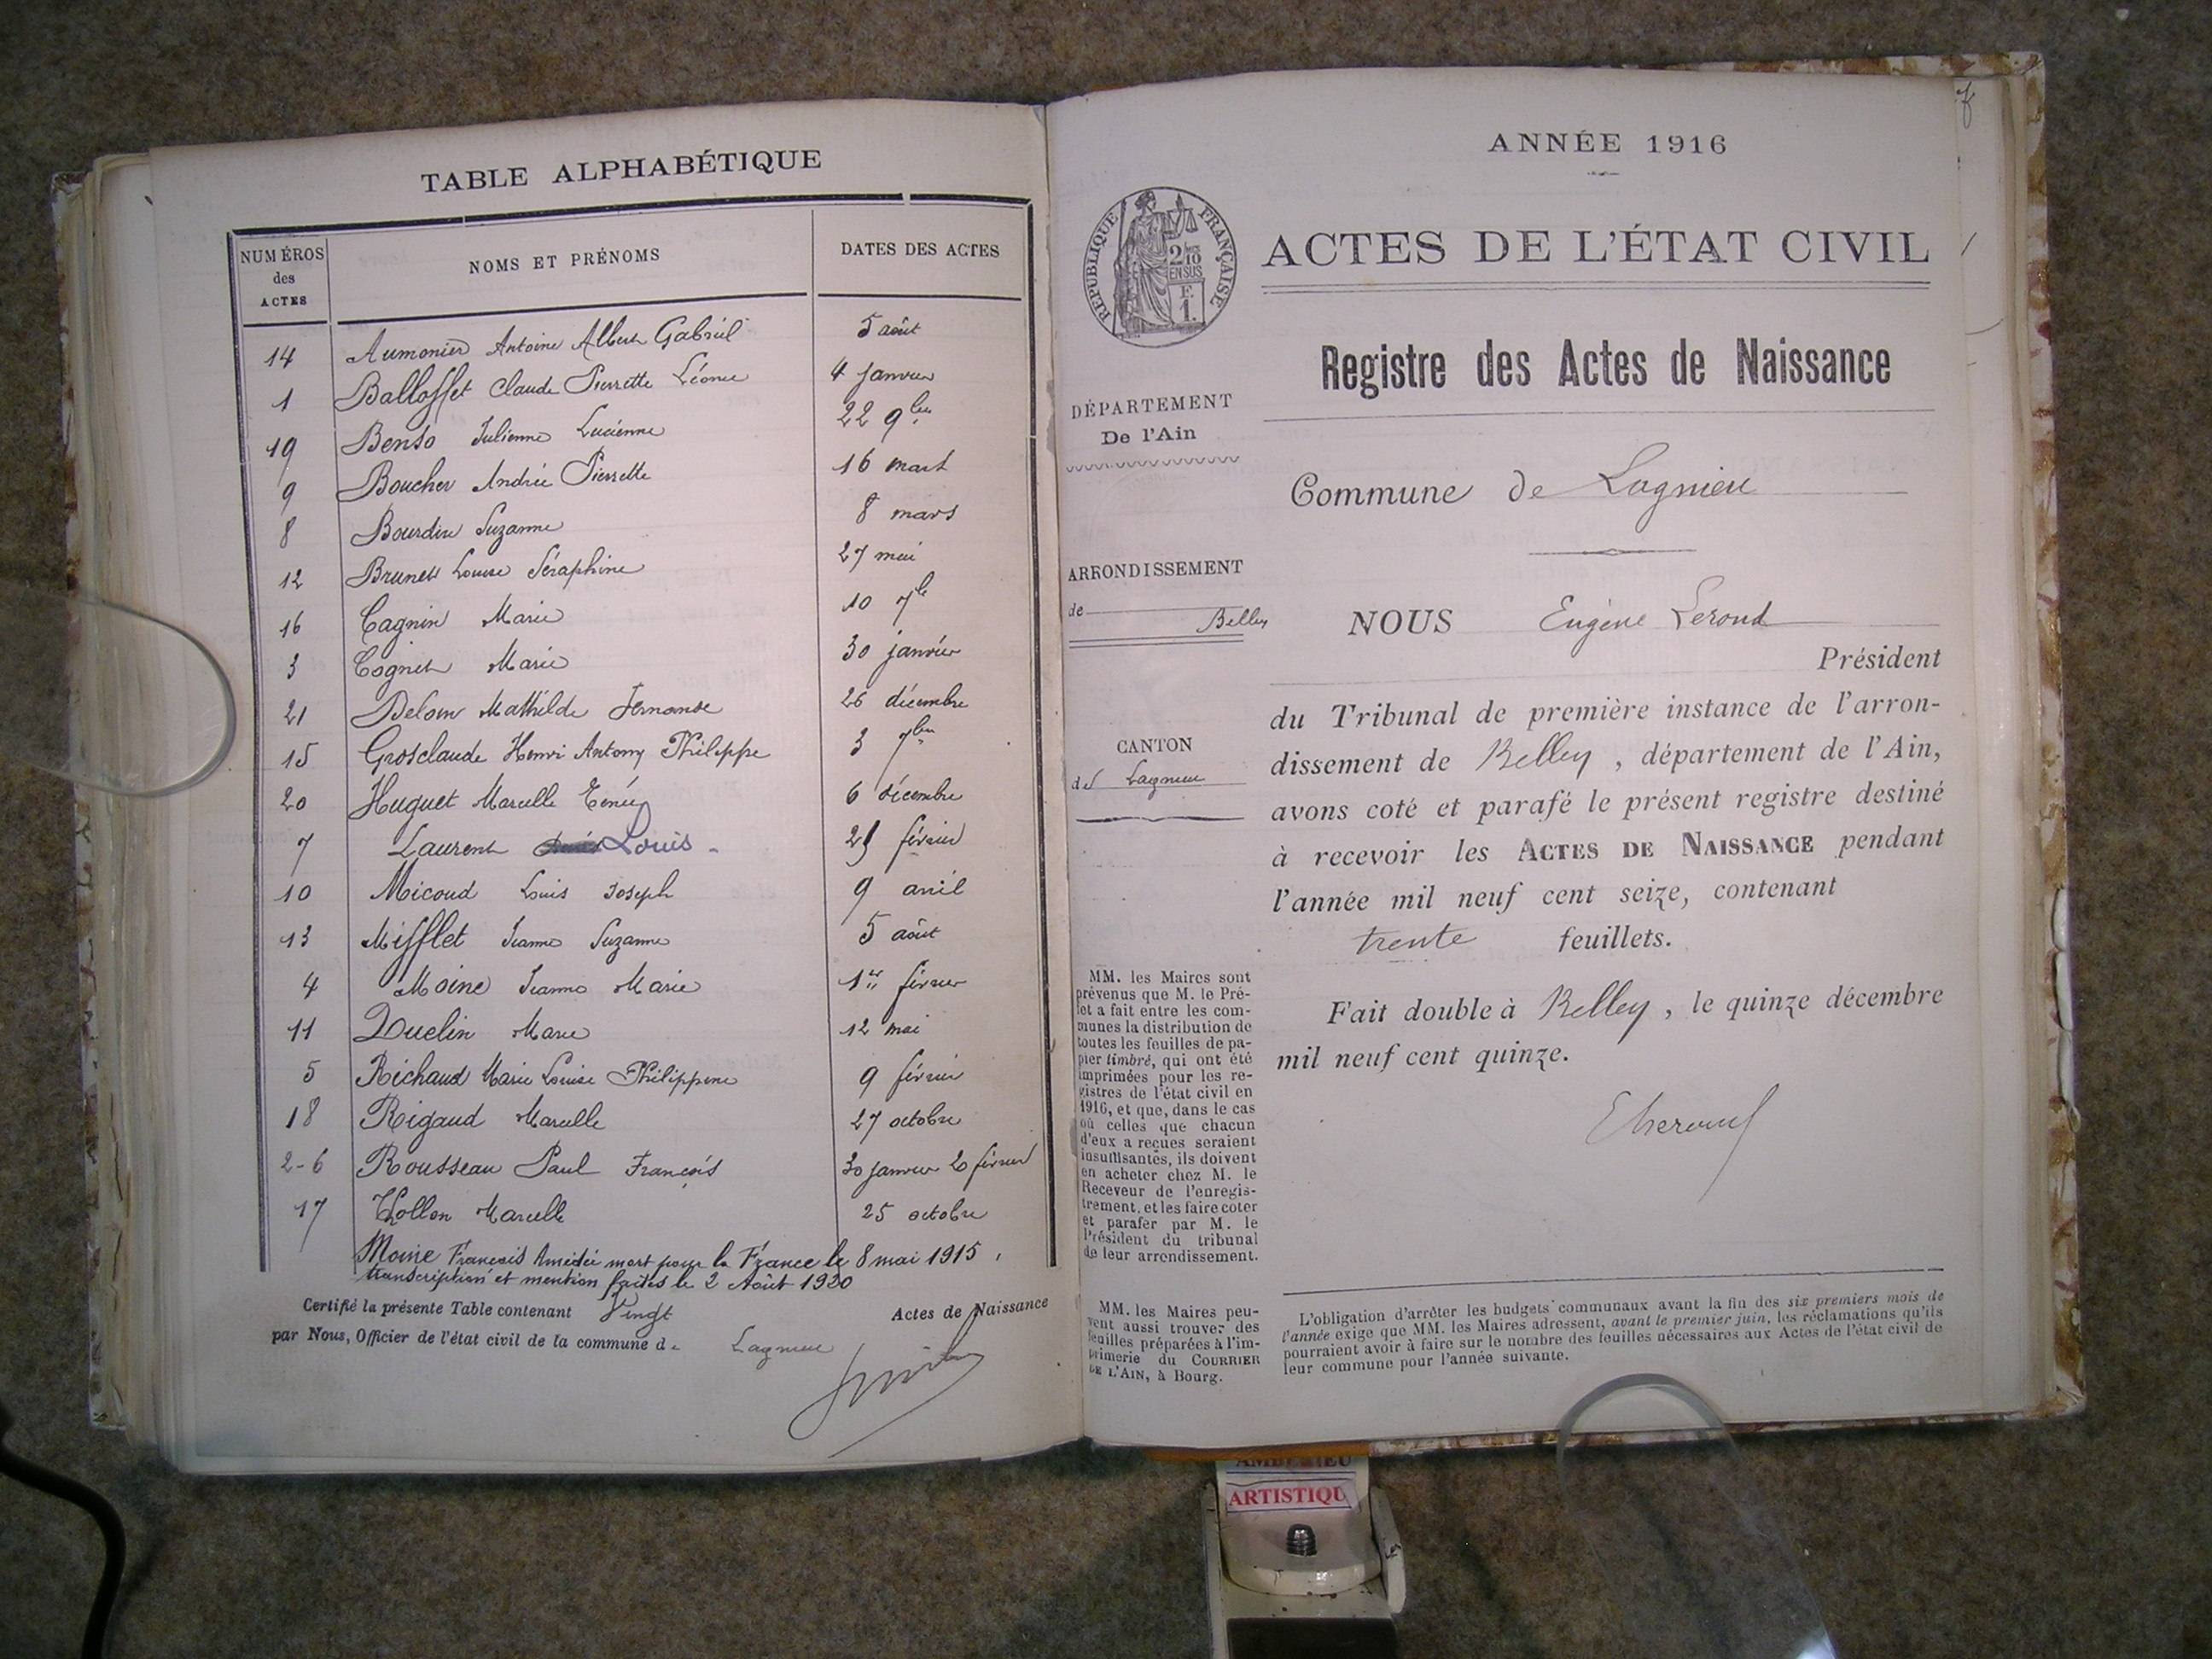 TABLE ALPHABÉTIQUE
NUMÉROS
des
ACTES
NOMS ET PRÉNOMS
DATES DES ACTES
14 Aumonier Antoine Albert Gabriel 5 août
1 Balloffet Claude Pierrette Léonie 4 janvier
19 Benso Julienne Lucienne 22 9bre
9 Boucher Andrée Pierrette 16 mars
8 Bourdin Suzanne 8 mars
12 Brunet Louise Séraphine 27 mai
16 Cagnin Marie 10 7bre
3 Cognet Marie 30 janvier
21 Mathilde Fernande 26 décembre
15 Grosclaude Henri Antony Philippe 3 7bre
20 Huguet Marcelle 6 décembre
7 Laurent Louis - février
10 Micoud Louis Joseph 9 avril
13 Mifflet Jeanne Suzanne 5 août
4 Moine Jeanne Marie 1er février
11 Quelin Marie 12 mai
5 Richaud Marie Louise Philippine 9 février
18 Rigaud Marcelle 27 octobre
2-6 Rousseau Paul François 30 janvier 20 février
17 Marcelle 25 octobre
Moine François Amédée mort pour la France le 8 mai 1915,
transcription et mention faites le 2 Août 1920
Certifié la présente Table contenant Vingt Actes de Naissance
par Nous, Officier de l'état civil de la commune de Lagnieu
ANNÉE 1916
RÉPUBLIQUE FRANÇAISE
2/10
EN SUS
F.
1.
ACTES DE L'ÉTAT CIVIL
Registre des Actes de Naissance
DÉPARTEMENT
De l'Ain
Commune de Lagnieu
ARRONDISSEMENT
de Belley
NOUS Eugène Leroud
Président
CANTON
de Lagnieu
du Tribunal de première instance de l'arron-
dissement de Belley, département de l'Ain,
avons coté et parafé le présent registre destiné
à recevoir les ACTES DE NAISSANCE pendant
l'année mil neuf cent seize, contenant
trente feuillets.
Fait double à Belley, le quinze décembre
mil neuf cent quinze.
MM. les Maires sont
prévenus que M. le Pré-
fet a fait entre les com-
munes la distribution de
toutes les feuilles de pa-
pier timbré, qui ont été
imprimées pour les re-
gistres de l'état civil en
1916, et que, dans le cas
où celles que chacun
d'eux a reçues seraient
insuffisantes, ils doivent
en acheter chez M. le
Receveur de l'enregis-
trement, et les faire coter
et parafer par M. le
Président du tribunal
de leur arrondissement.
MM. les Maires peu-
vent aussi trouver des
feuilles préparées à l'im-
primerie du COURRIER
DE L'AIN, à Bourg.
L'obligation d'arrêter les budgets communaux avant la fin des six premiers mois de
l'année exige que MM. les Maires adressent, avant le premier juin, les réclamations qu'ils
pourraient avoir à faire sur le nombre des feuilles nécessaires aux Actes de l'état civil de
leur commune pour l'année suivante.
AMBERIEU
ARTISTIQU